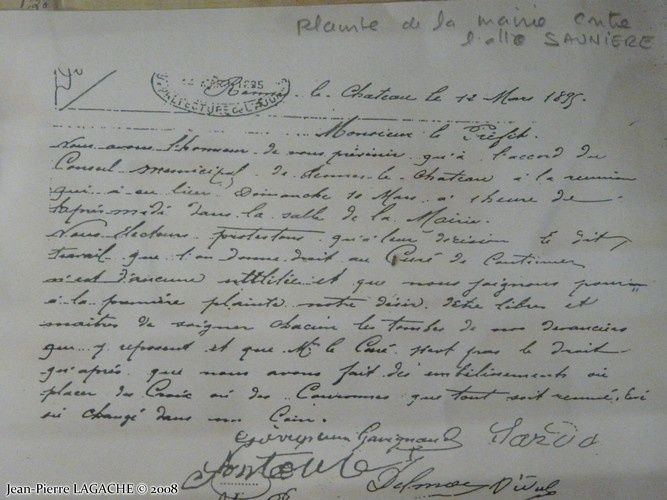 plainte de la mairie contre
l'abbé SAUNIERE
PREFECTURE DE L'AUDE
Rennes le Chateau le 12 Mars 1895.
Monsieur le Préfet.
Nous avons l'honneur de vous prévenir qu'à l'accord du
Conseil municipal de Rennes le Chateau à la reunion
qui a eu lieu Dimanche 10 Mars à 1 heure de
l'après midi dans la salle de la Mairie.
Nous électeurs protestons qu'à leur décision le dit
travail que l'on donne droit au Curé de Continuer
n'est d'aucune utilitie et que nous joignons pour
à la première plainte notre désir d'être libres et
maitres de soigner chacun les tombes de nos devanciers
qui y reposent et que Mr le Curé n'est pas le droit
qu'après que nous avons fait des embélisements où
placer des Croix où des Couronnes que tout soit remué, levé
où changé dans un Coin.
Gavignaud Sarda
Delmas Vidal
Jean-Pierre LAGACHE © 2008